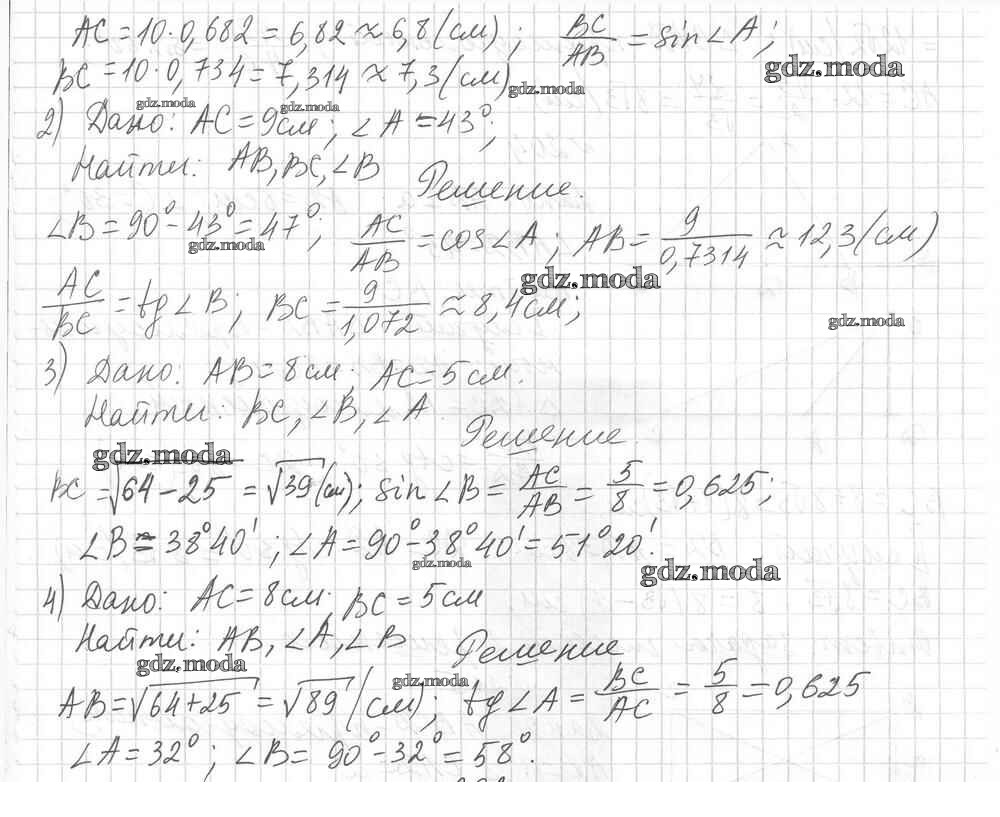 AC = 10·0,682 = 6,82 ≈ 6,8 (см) ; BC/AB = sin∠A ;
BC = 10·0,734 = 7,314 ≈ 7,3 (см)
gdz.moda
gdz.moda
gdz.moda
gdz.moda
2) Дано: AC = 9см ; ∠A = 43° ;
Найти: AB, BC, ∠B
Решение.
∠B = 90° − 43° = 47° ; AC/AB = cos∠A ; AB = 9/0,7314 ≈ 12,3 (см)
gdz.moda
gdz.moda
AC/BC = tg∠B ; BC = 9/1,072 ≈ 8,4см ;
gdz.moda
3) Дано: AB = 8см ; AC = 5см.
Найти: BC, ∠B, ∠A
Решение
gdz.moda
BC = √64 − 25 = √39 (см) ; sin∠B = AC/AB = 5/8 = 0,625 ;
∠B = 38°40' ; ∠A = 90° − 38°40' = 51°20'.
gdz.moda
gdz.moda
4) Дано: AC = 8см ; BC = 5см
Найти: AB, ∠A, ∠B
Решение
gdz.moda
gdz.moda
AB = √64 + 25 = √89 (см) ; tg∠A = BC/AC = 5/8 = 0,625
∠A = 32° ; ∠B = 90° − 32° = 58°.